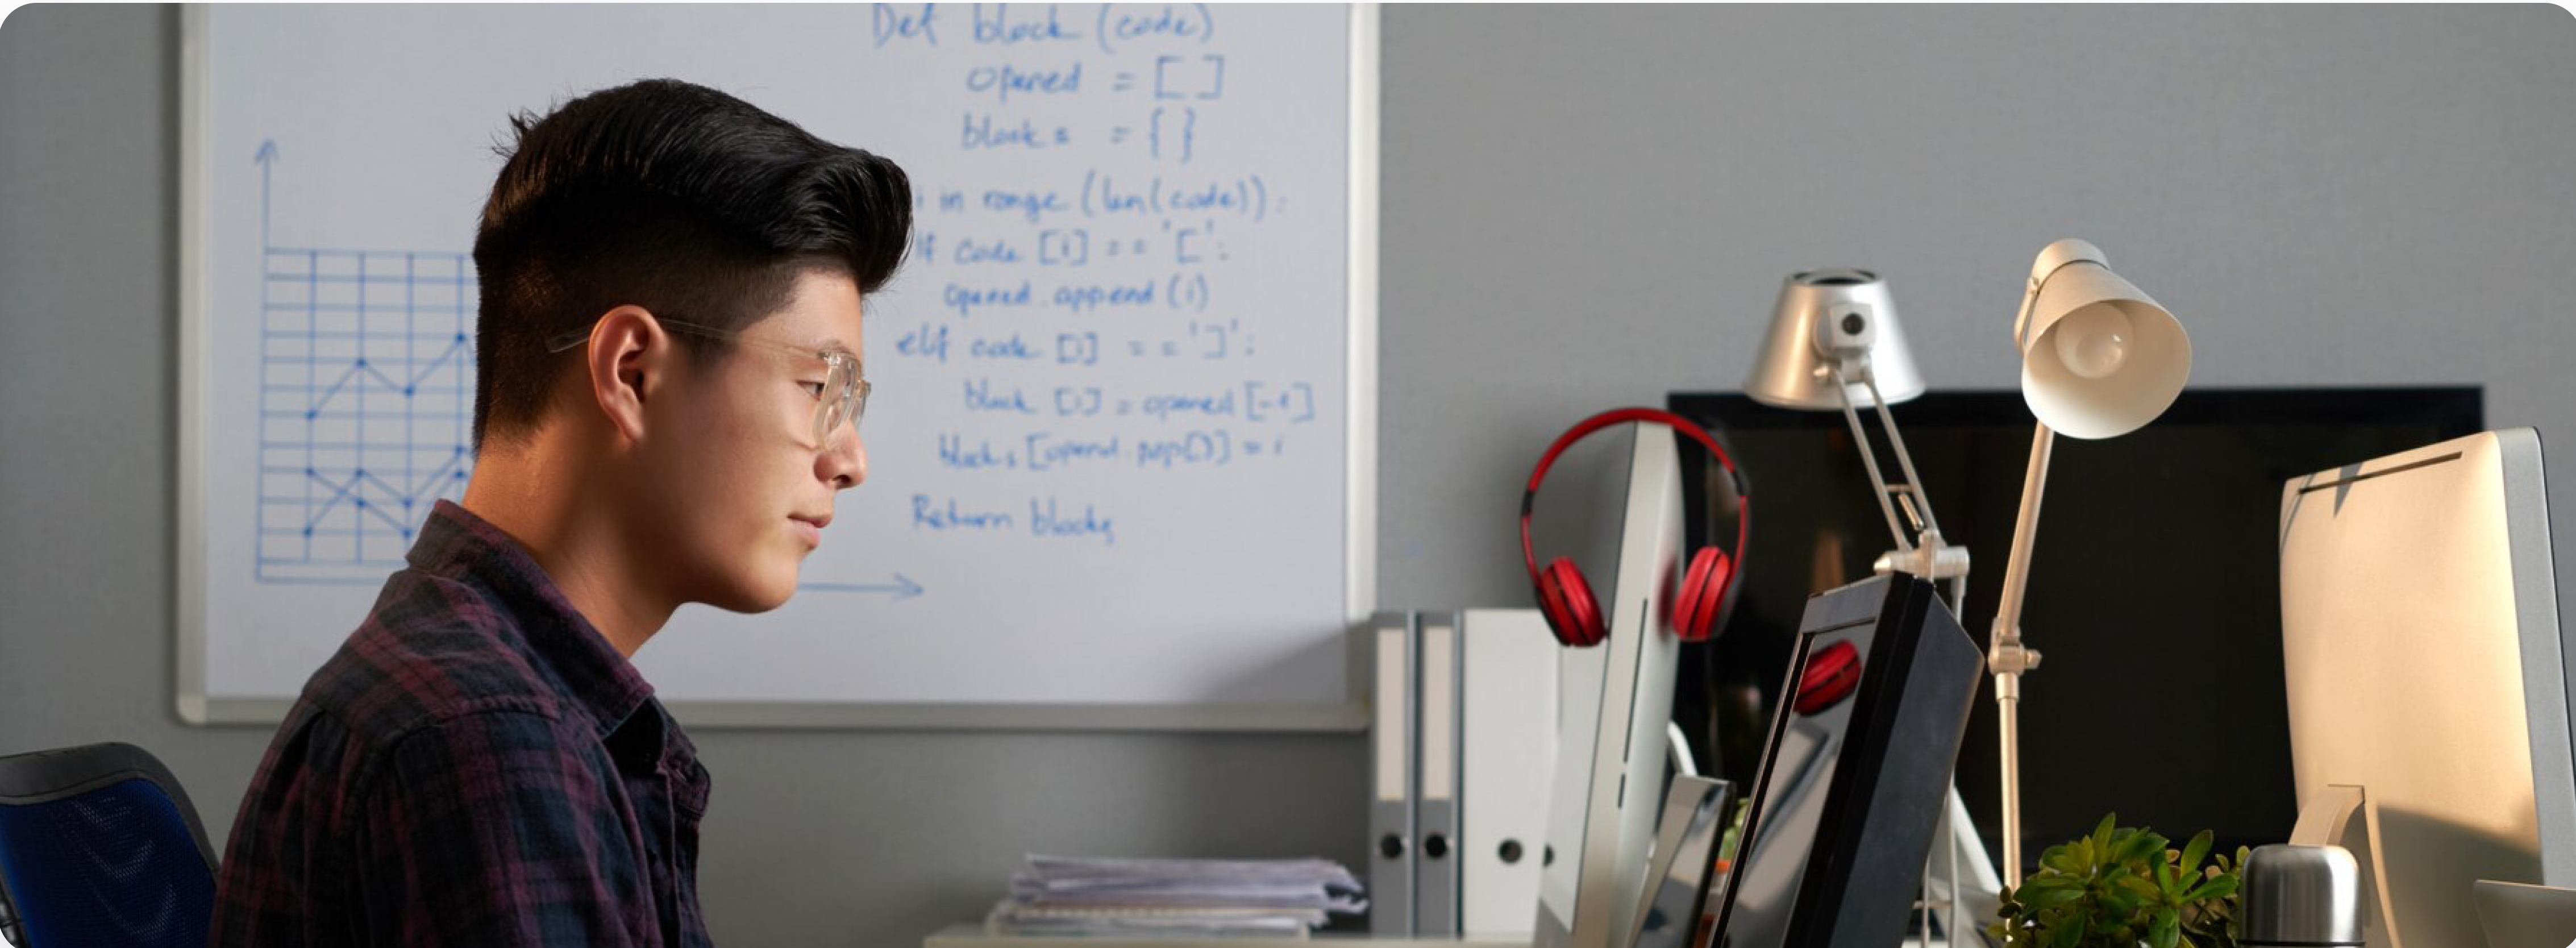 Def block (code)
opened = [ ]
blocks = { }
i in range (len(code)):
if code [i] == '[':
opened.append (i)
elif code [i] == ']':
block [i] = opened [-1]
blocks [opened.pop()] = i
Return blocks